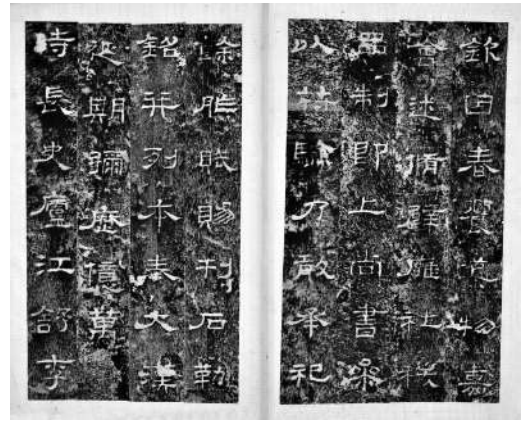 欽因春饗導物嘉
會述脩辟廱社稷
品制即上尚書參
以苻驗乃敢承祀
餘胙賦賜刊石勒
銘并列本奏大漢
延期彌歷億萬
時長史廬江舒李